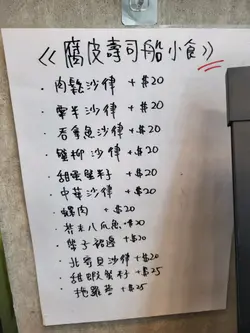 《腐皮壽司船小食》
· 肉鬆沙律 +$20
· 粟米沙律 +$20
· 吞拿魚沙律 +$20
· 蟹柳沙律 +$20
· 甜蛋蟹籽 +$20
· 中華沙律 +$20
· 螺肉 +$20
· 芥末八爪魚 +$20
· 帶子裙邊 +$20
· 北寄貝沙律 +$20
· 甜蝦蟹籽 +$25
· 拖羅蓉 +$25